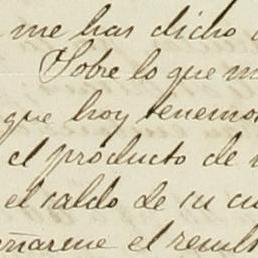 me has dicho
Sobre lo que m
que hoy tenemos
el producto de
el saldo de su cu
eñarene el resul